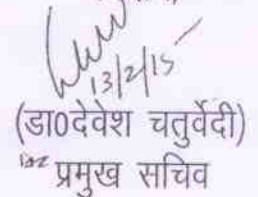 13/2/15
(डा0देवेश चतुर्वेदी)
प्रमुख सचिव